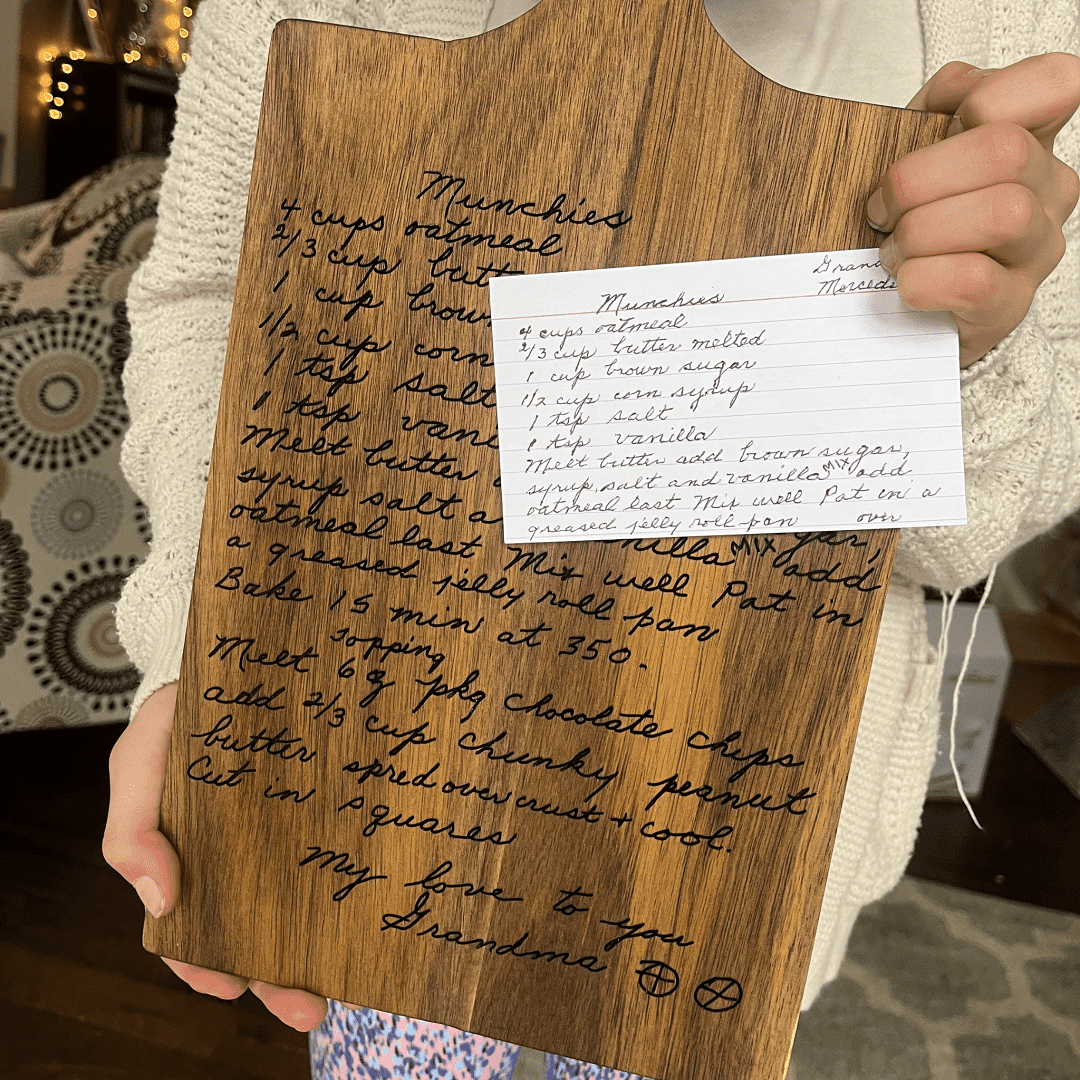 Munchies
4 cups oatmeal
2/3 cup butt
1 cup brown
1/2 cup corn
1 tsp salt
1 tsp vani
Melt butter
syrup salt a
nilla MIX gar,
oatmeal last Mix well Pat in
add
a greased jelly roll pan
Bake 15 min at 350.
Topping
Melt 6 g pkg chocolate chips
add 2/3 cup chunky peanut
butter spred over crust + cool.
Cut in squares
My love to you
Grandma
Grand
Mercede
Munchies
4 cups oatmeal
2/3 cup butter melted
1 cup brown sugar
1/2 cup corn syrup
1 tsp salt
1 tsp vanilla
Melt butter add brown sugar,
syrup, salt and vanilla MIX add
oatmeal last Mix well Pat in a
greased jelly roll pan over